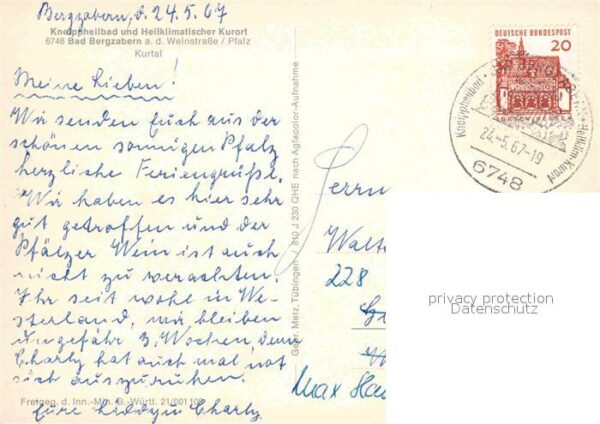 Bergzabern, d. 24.5.67
Kneippheilbad und Heilklimatischer Kurort
6748 Bad Bergzabern a. d. Weinstraße / Pfalz
Kurtal
Meine Lieben!
Wir senden Euch aus der
schönen sonnigen Pfalz
herzliche Feriengrüße.
Wir haben es hier sehr
gut getroffen und der
Pfälzer Wein ist auch
nicht zu verachten.
Ihr seit wohl in We-
sterland, wir bleiben
ungefähr 3 Wochen, denn
Charly hat auch mal not
sich auszuruhen.
Freigeg. d. Inn.-Min. B.-Württ. 21/001
Eure Charly
Gebr. Metz, Tübingen 810 J 230 QHE nach Agfacolor-Aufnahme
DEUTSCHE BUNDESPOST
20
Kneippheilbad
Heilklim. Kurort
24.-5.67-19
6748
Walte
228
Max Ha
privacy protection
Datenschutz